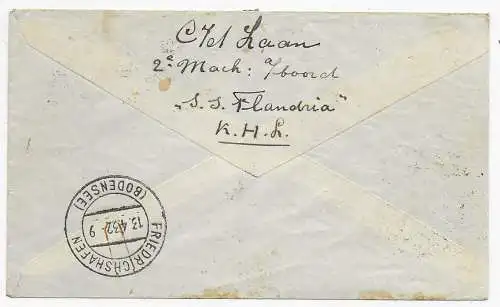 C/st Laan
2e Mach: a/boord
„S.S. Flandria"
K.H.L.
FRIEDRICHSHAFEN
(BODENSEE)
13.4.32 9